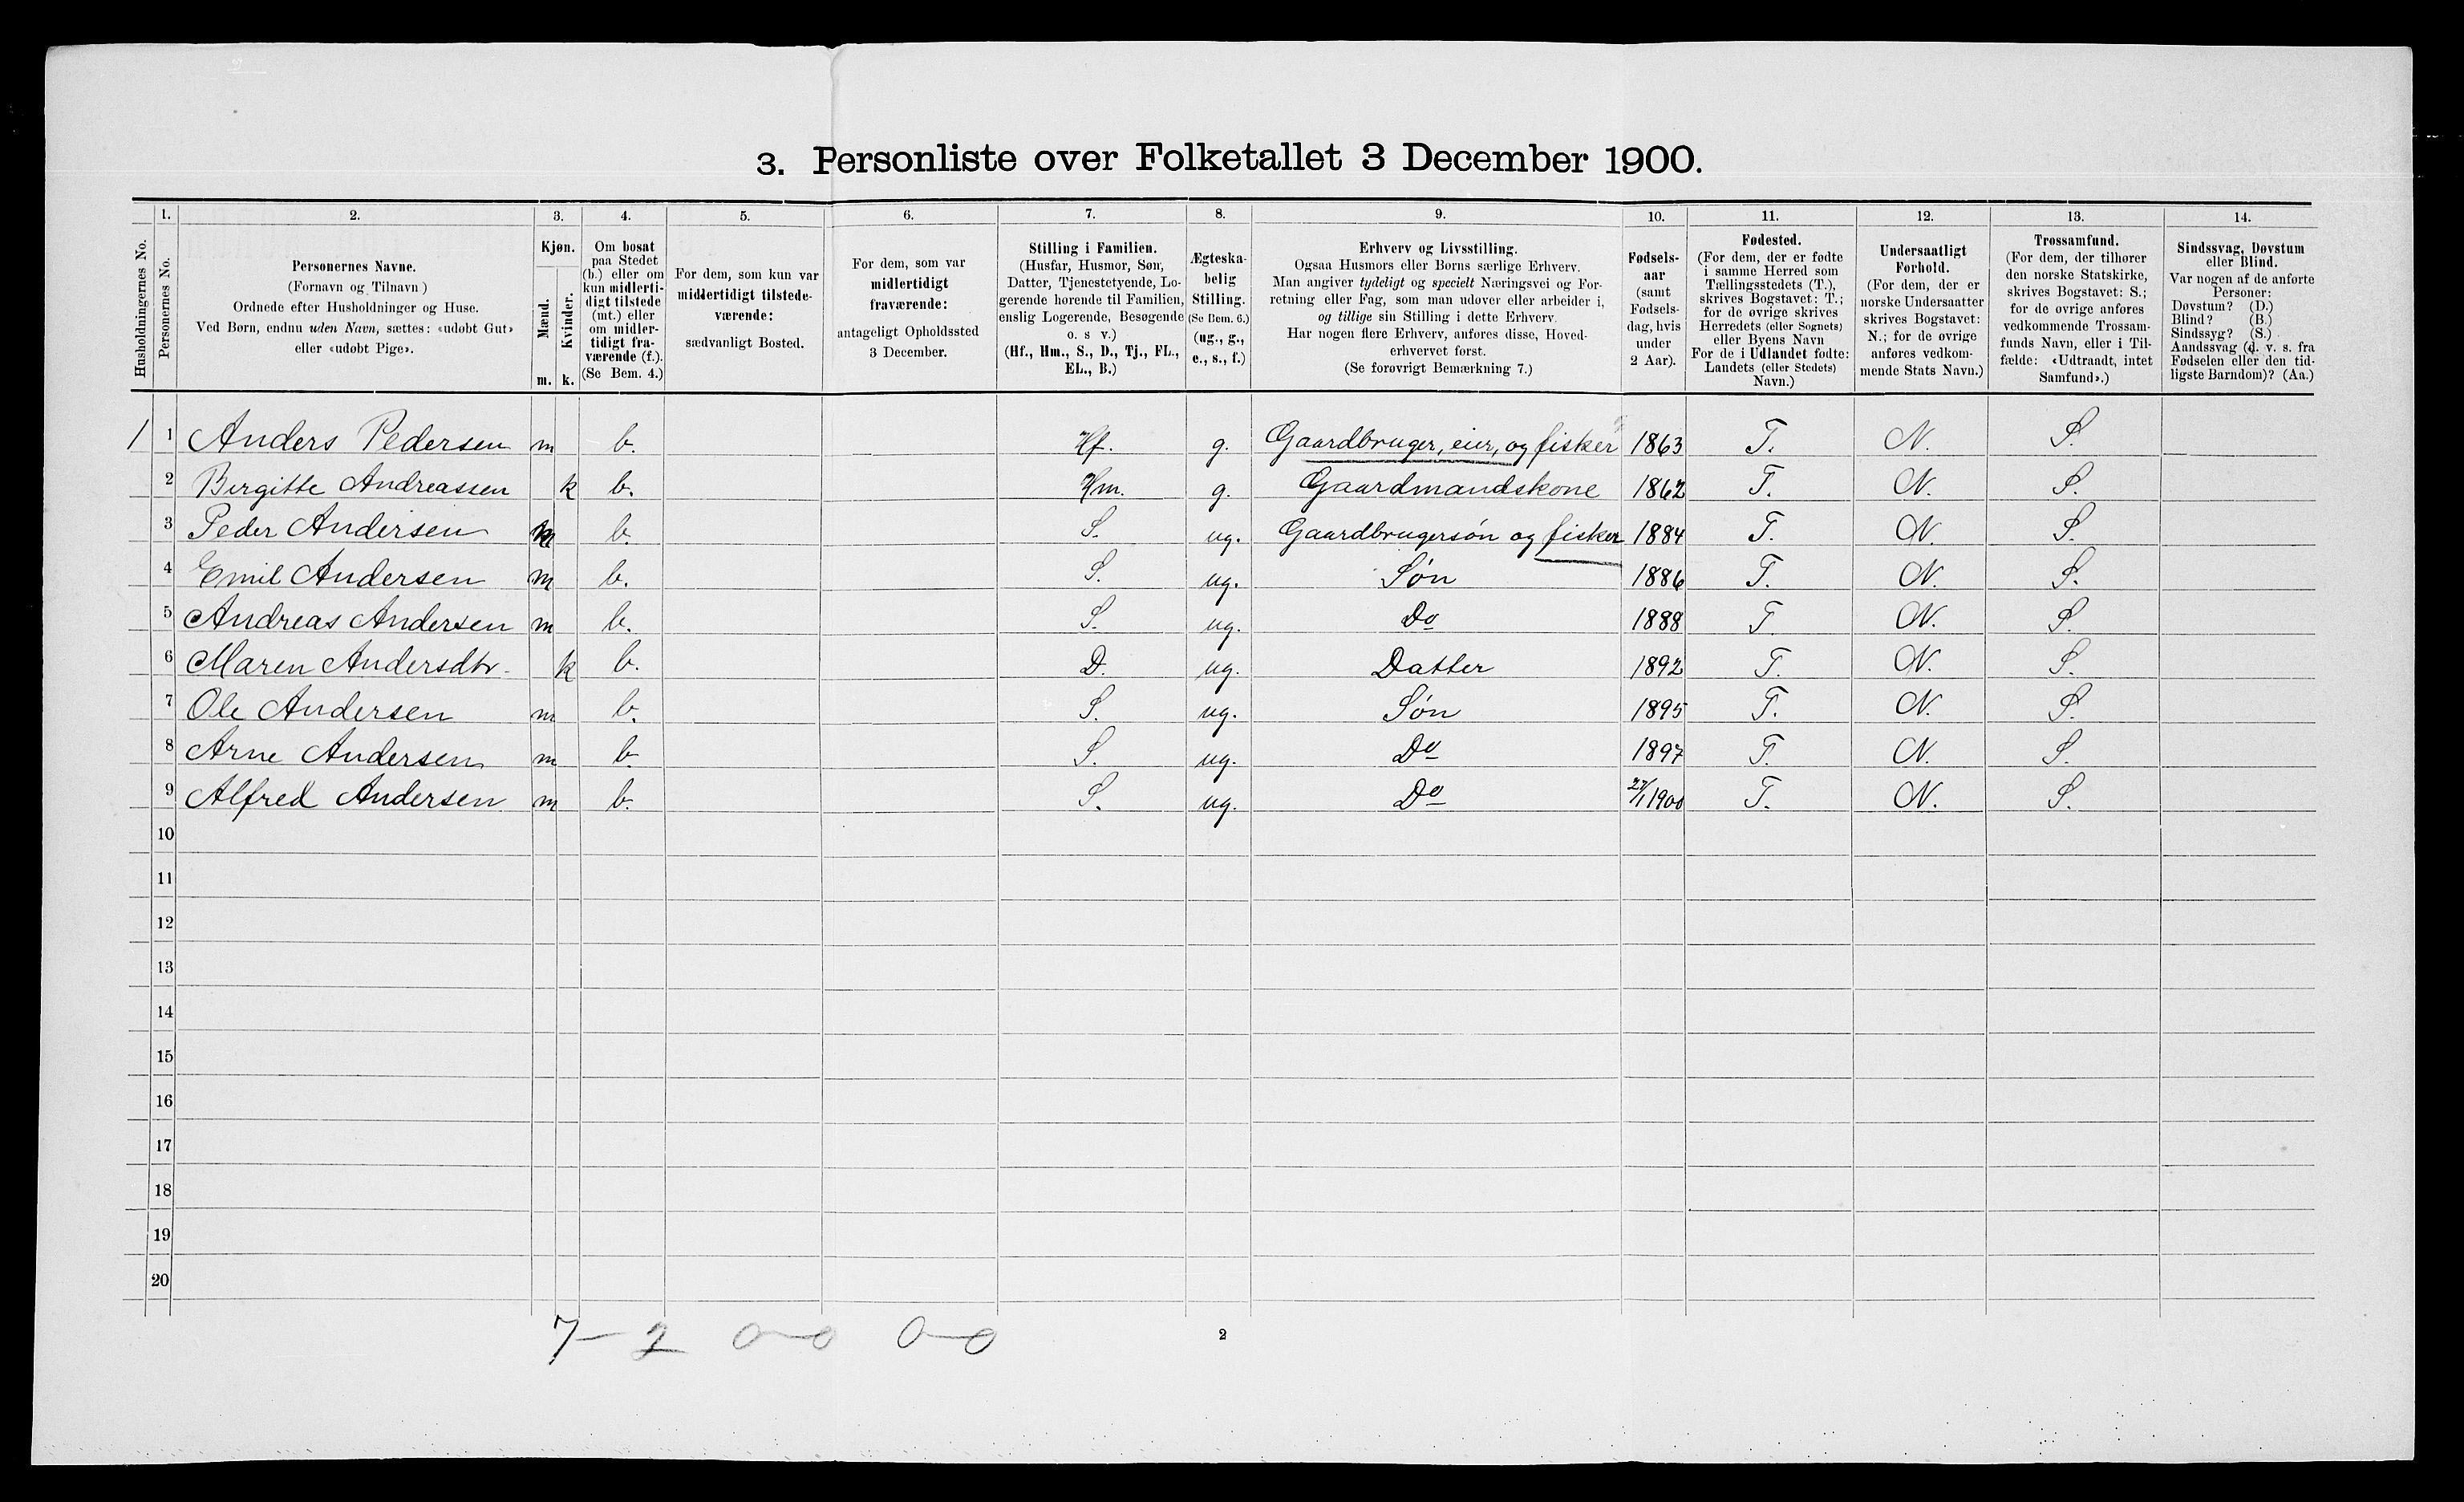 3. Personliste over Folketallet 3 December 1900.
Husholdningernes No.
1.
Personernes No.
2.
Personernes Navne.
(Fornavn og Tilnavn)
Ordnede efter Husholdninger og Huse.
Ved Børn, endnu uden Navn, sættes: «udøbt Gut»
eller «udøbt Pige».
3.
Kjøn.
Mænd.
Kvinder.
m. k.
4.
Om bosat
paa Stedet
(b.) eller om
kun midlerti-
digt tilstede
(mt.) eller
om midler-
tidigt fra-
værende (f.).
(Se Bem. 4.)
5.
For dem, som kun var
midlertidigt tilstede-
værende:
sædvanligt Bosted.
6.
For dem, som var
midlertidigt
fraværende:
antageligt Opholdssted
3 December.
7.
Stilling i Familien.
(Husfar, Husmor, Søn,
Datter, Tjenestetyende, Lo-
gerende hørende til Familien,
enslig Logerende, Besøgende
o. s v.)
(Hf., Hm., S., D., Tj., FL.,
EL., B.)
8.
Ægteska-
belig
Stilling.
(Se Bem. 6.)
(ug., g.,
e., s., f.)
9.
Erhverv og Livsstilling.
Ogsaa Husmors eller Børns særlige Erhverv.
Man angiver tydeligt og specielt Næringsvei og For-
retning eller Fag, som man udøver eller arbeider i,
og tillige sin Stilling i dette Erhverv.
Har nogen flere Erhverv, anføres disse, Hoved-
erhvervet først.
(Se forøvrigt Bemærkning 7.)
10.
Fødsels-
aar
(samt
Fødsels-
dag, hvis
under
2 Aar).
11.
Fødested.
(For dem, der er fødte
i samme Herred som
Tællingsstedets (T.),
skrives Bogstavet: T.;
for de øvrige skrives
Herredets (eller Sognets)
eller Byens Navn
For de i Udlandet fødte:
Landets (eller Stedets)
Navn.)
12.
Undersaatligt
Forhold.
(For dem, der er
norske Undersaatter
skrives Bogstavet:
N.; for de øvrige
anføres vedkom-
mende Stats Navn.)
13.
Trossamfund.
(For dem, der tilhører
den norske Statskirke,
skrives Bogstavet: S.;
for de øvrige anføres
vedkommende Trossam-
funds Navn, eller i Til-
fælde: «Udtraadt, intet
Samfund».)
14.
Sindssvag, Døvstum
eller Blind.
Var nogen af de anførte
Personer:
Døvstum? (D.)
Blind? (B.)
Sindssyg? (S.)
Aandssvag (d. v. s. fra
Fødselen eller den tid-
ligste Barndom)? (Aa.)
1 1 Anders Pedersen m b. Hf. g. Gaardbruger, eier, og fisker 1863 T. N. S.
2 Birgitte Andreassen k b. Hm. g. Gaardmandskone 1862 T. N. S.
3 Peder Andersen m b. S. ug. Gaardbrugersøn og fisker 1884 T. N. S.
4 Emil Andersen m b. S. ug. Søn 1886 T. N. S.
5 Andreas Andersen m b. S. ug. Do 1888 T. N. S.
6 Maren Andersdtr. k b. D. ug. Datter 1892 T. N. S.
7 Ole Andersen m b. S. ug. Søn 1895 T. N. S.
8 Arne Andersen m b. S. ug. Do 1897 T. N. S.
9 Alfred Andersen m b. S. ug. Do 1900 T. N. S.
10
11
12
13
14
15
16
17
18
19
20
7 - 2 0-0 0-0
2